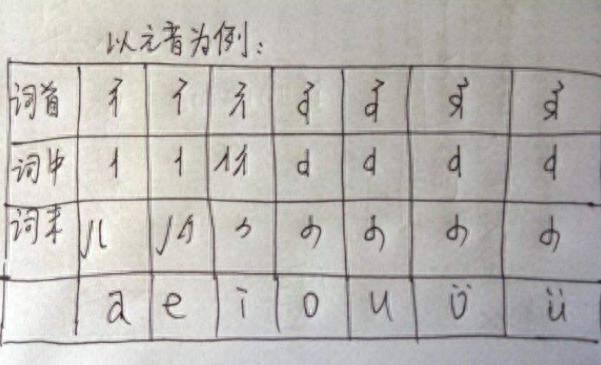 以元音为例：
词首 ᠠ ᠡ ᠢ ᠣ ᠤ ᠥ ᠦ
词中 ᠠ ᠡ ᠢ ᠣ ᠤ ᠥ ᠦ
词末 ᠠ ᠡ ᠢ ᠣ ᠤ ᠥ ᠦ
a e i o u ö ü